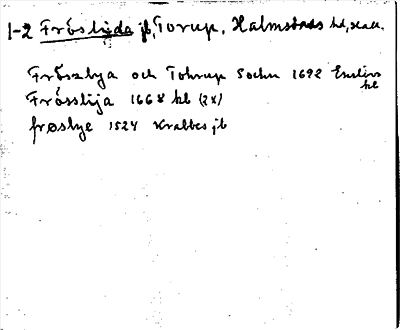 1-2 Fröslida jb, Torup, Halmstads hd, Hall.
Fröszlya och Tohrup Sochn 1692
kb
Frösslija 1668 kb (2x)
frøslye 1524 Krabbes jb